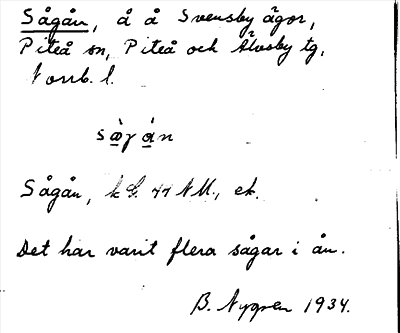 Sågån, å å Svensby ägor,
Piteå sn, Piteå och Älvsby tg,
Norrb. l.
Sågån, k G. 44 NU., ek.
Det har varit flera sågar i ån.
B. Nygren 1934.